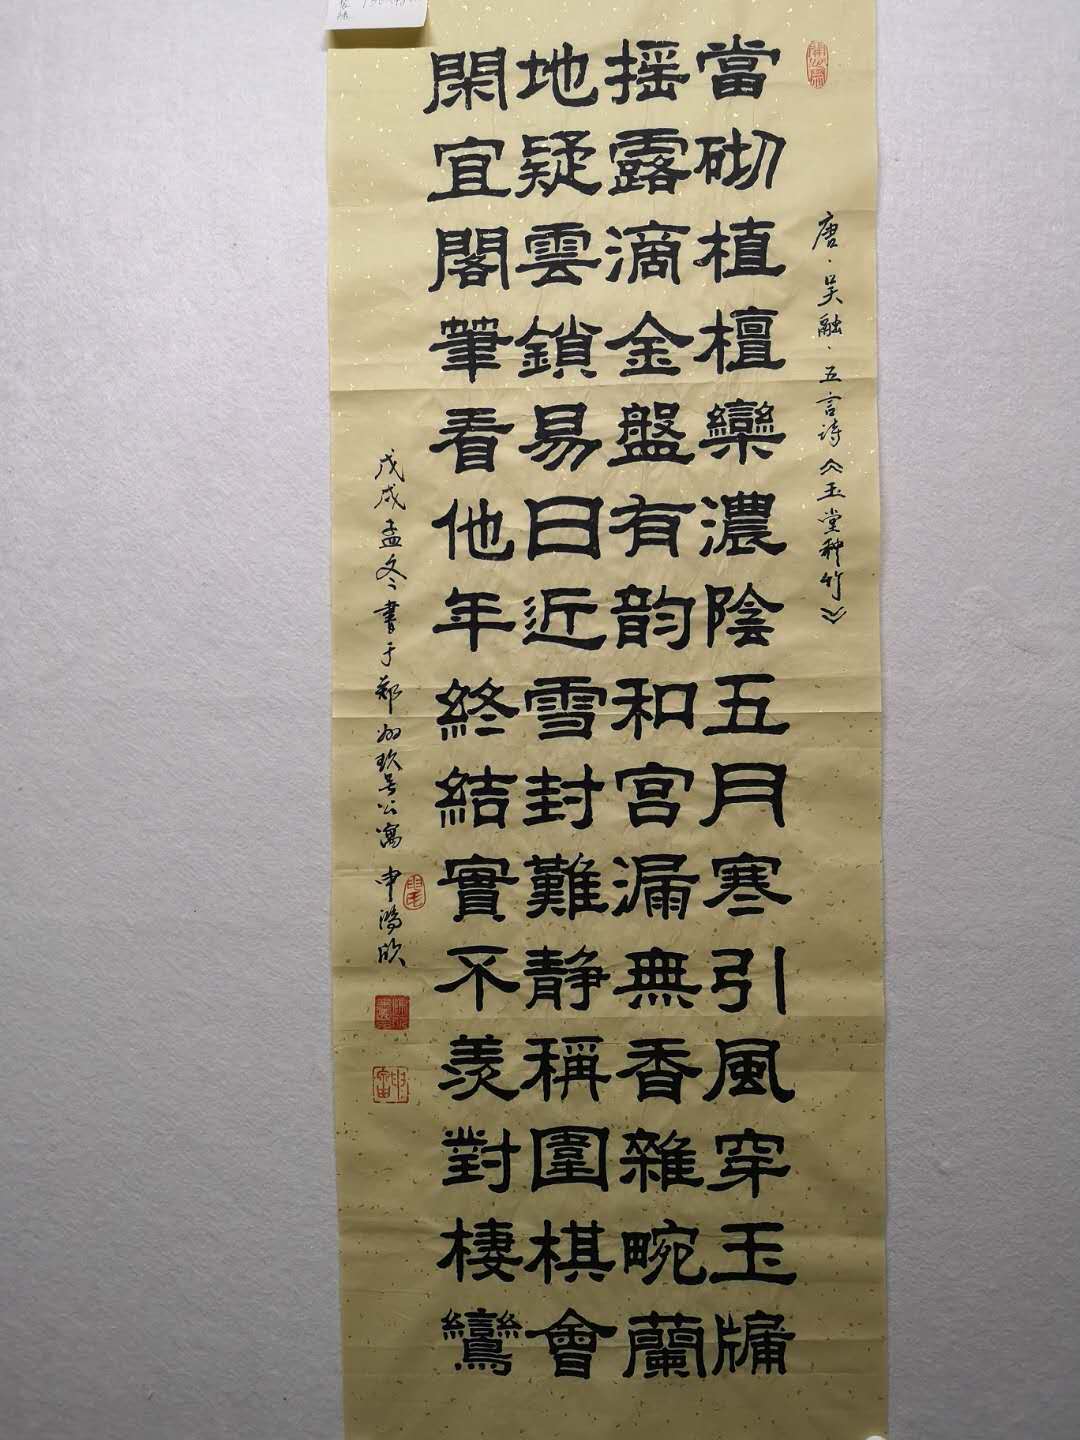 唐·吴融·五言詩《玉堂种竹》
當砌植檀欒濃陰五月寒引風穿玉牖
摇露滴金盤有韵和宮漏無香雜畹蘭
地疑雲鎖易日近雪封難静稱圍棋會
閑宜閣筆看他年終結實不羨對棲鸞
戊戌孟冬書于鄭州玖号公寓 申鴻欣